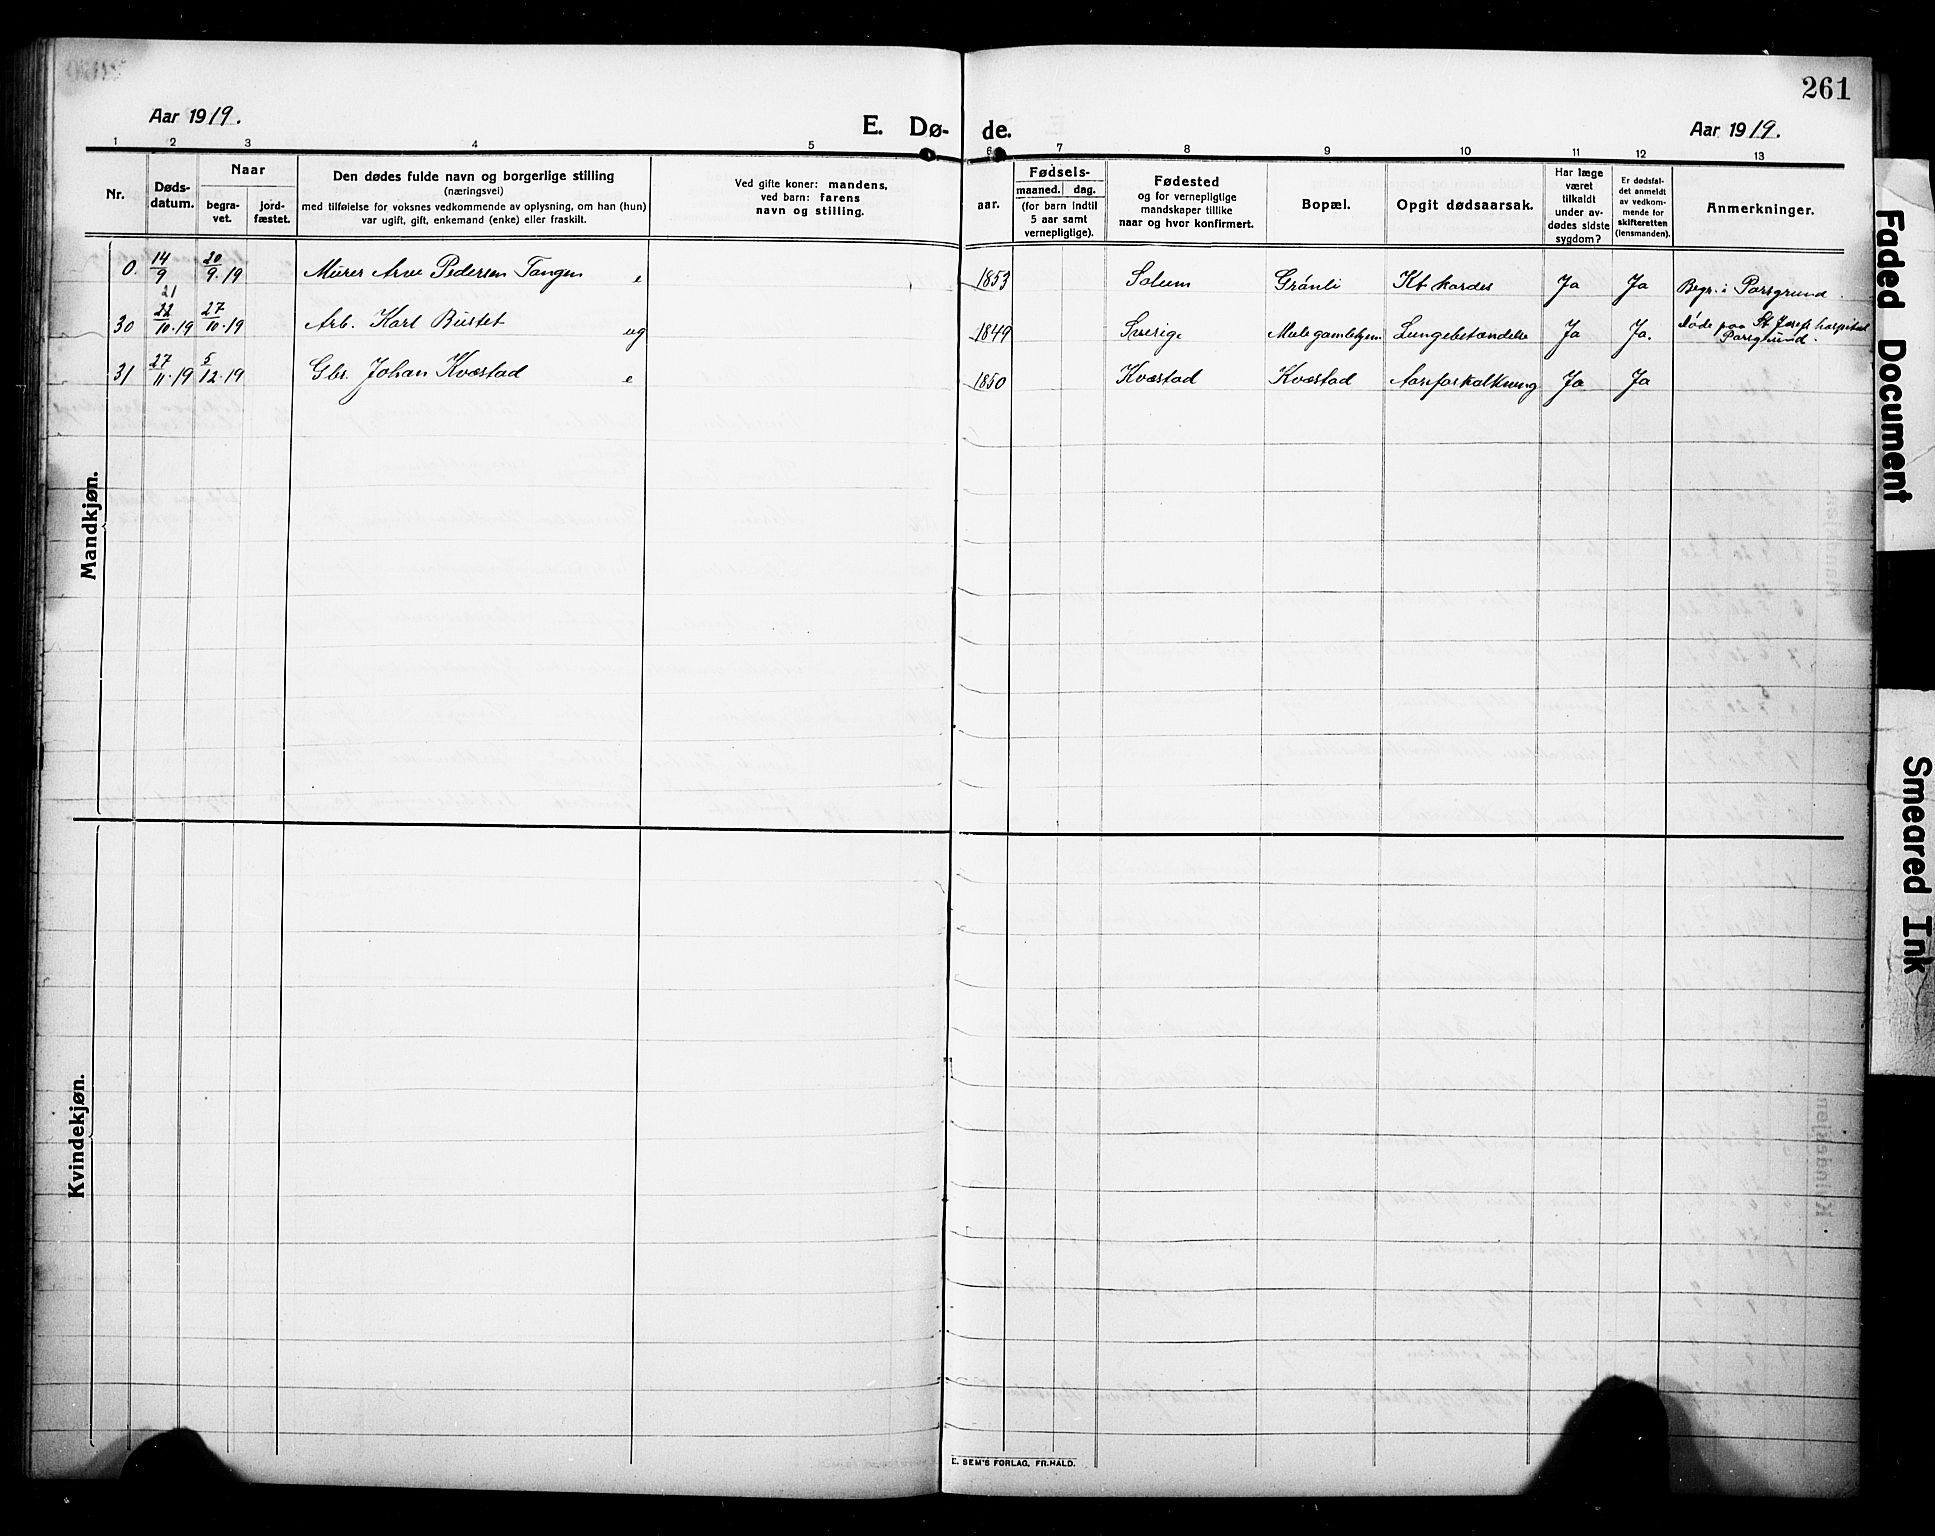 261
Aar 1919.
E. Dø- de.
Aar 1919.
1 2 3 4 5 6 7 8 9 10 11 12 13
Nr.
Døds-
datum.
Naar
begra-
vet.
jord-
fæstet.
Den dødes fulde navn og borgerlige stilling
(næringsvei)
med tilføielse for voksnes vedkommende av oplysning, om han (hun)
var ugift, gift, enkemand (enke) eller fraskilt.
Ved gifte koner: mandens,
ved barn: farens
navn og stilling.
aar.
Fødsels-
maaned. dag.
(for barn indtil
5 aar samt
vernepligtige).
Fødested
og for vernepligtige
mandskaper tillike
naar og hvor konfirmert.
Bopæl.
Opgit dødsaarsak.
Har læge
været
tilkaldt
under av-
dødes sidste
sygdom?
Er dødsfal-
det anmeldt
av vedkom-
mende for
skifteretten
(lensmanden).
Anmerkninger.
0 14/9 20/9.19 Murer Arve Pedersen Tangen e 1853 Solum Grønli Ja Ja Begr. i Porsgrund.
21
30 22/10.19 27/10.19 Arb. Karl Bustet ug 1849 Sverige Mulegamlehjem Lungebetændelse Ja Ja. Døde paa St. Josefs hospital
Porsgrund.
31 27/11.19 5/12.19 Gbr. Johan Kvæstad e 1850 Kvæstad Kvæstad Aareforkalkning Ja Ja
Mandkjøn.
Kvindekjøn.
E. SEM'S FORLAG, FR.HALD.
Faded Document
Smeared Ink